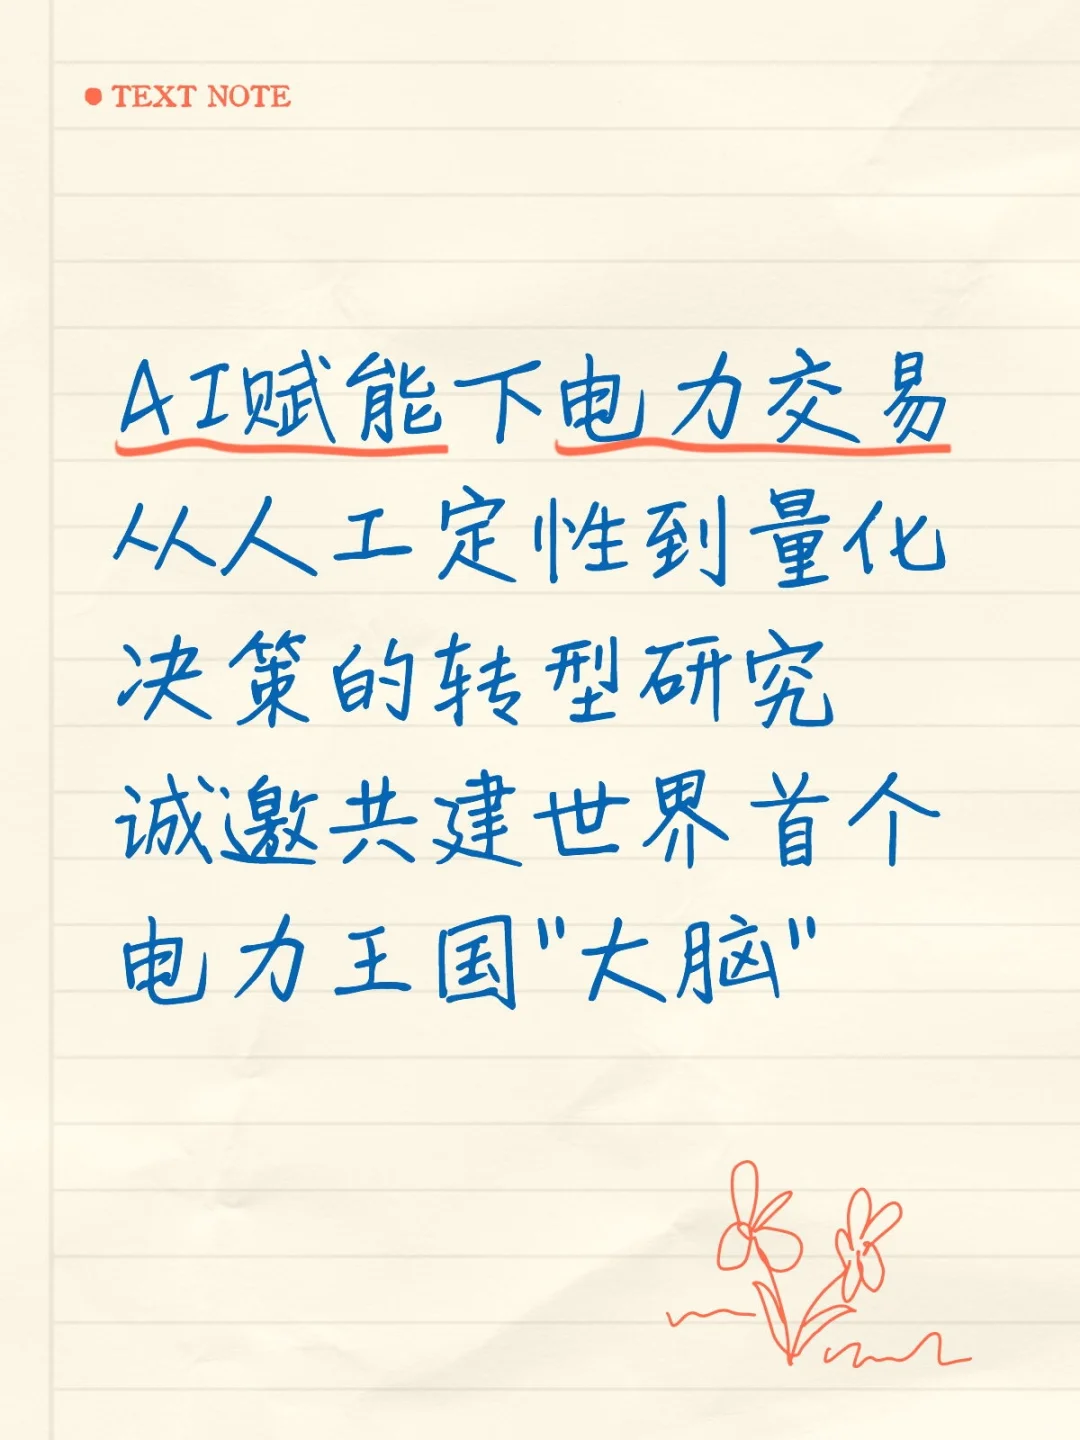 TEXT NOTE
AI赋能下电力交易
从人工定性到量化
决策的转型研究
诚邀共建世界首个
电力王国"大脑"